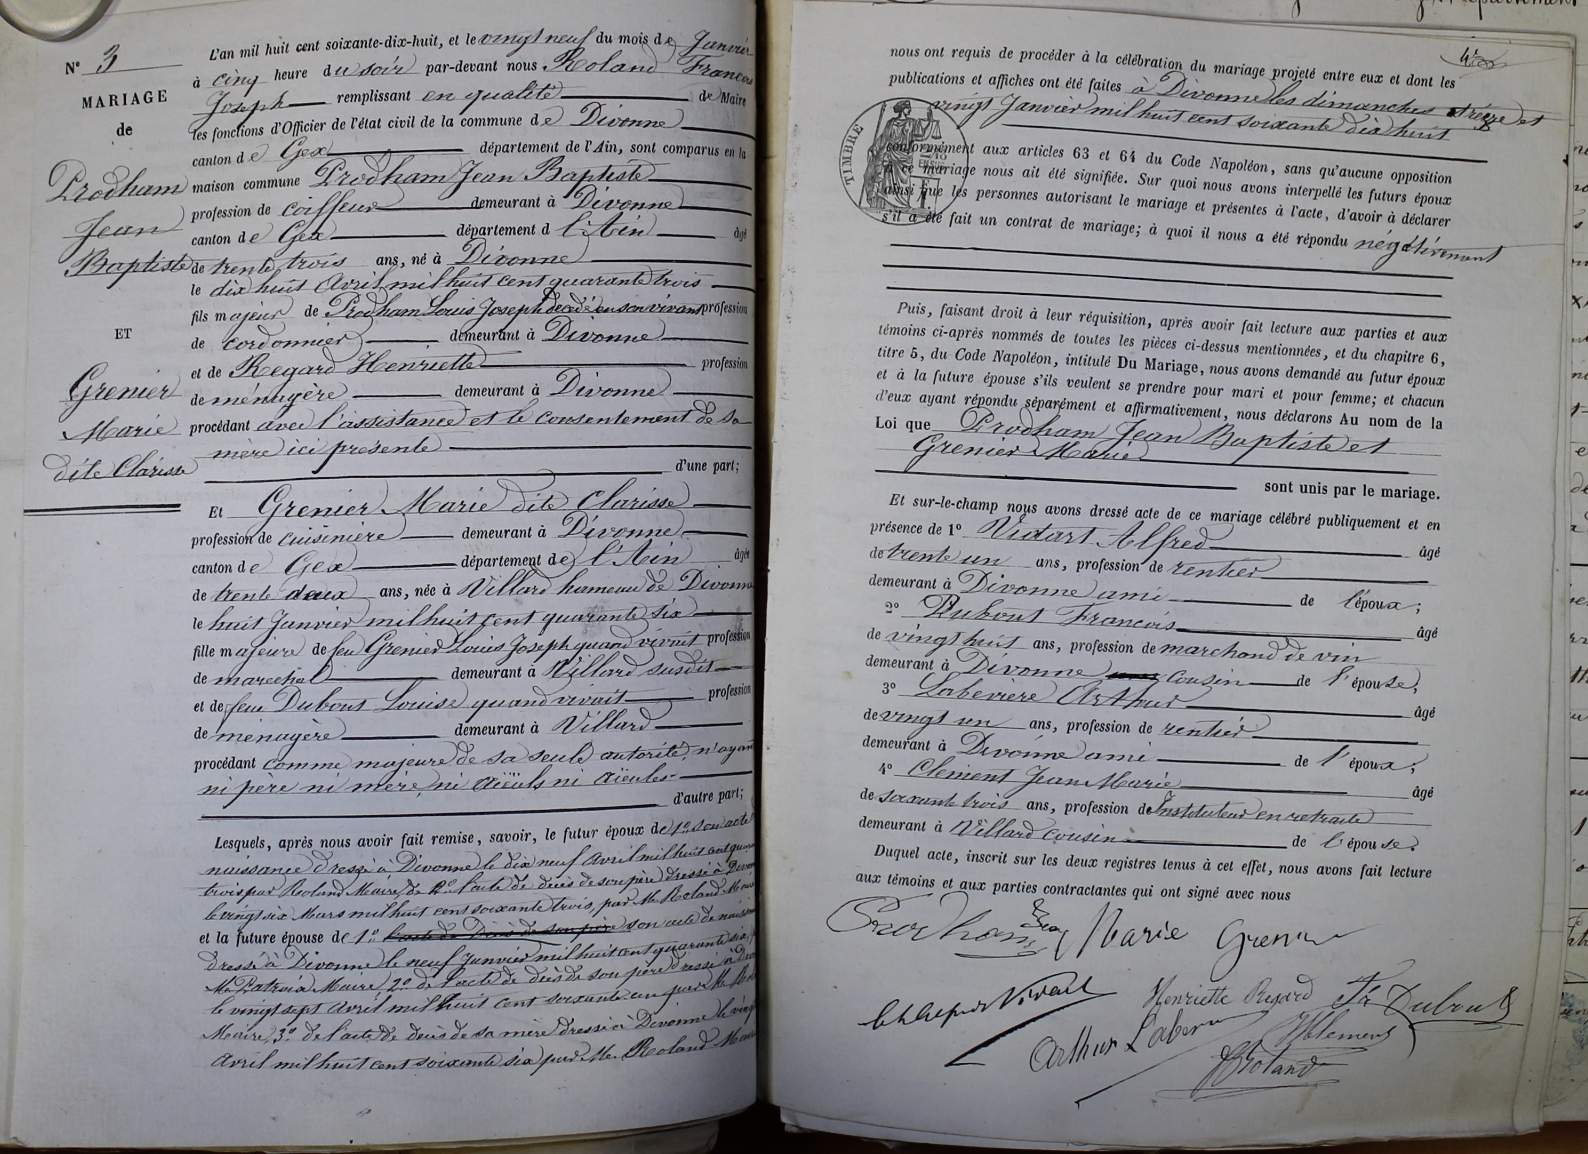 N° 3
MARIAGE
de
Prodham
Jean
Baptiste
ET
Grenier
Marie
dite Clarisse
L'an mil huit cent soixante-dix-huit, et le vingt neuf du mois de Janvier
à cinq heure du soir par-devant nous Roland François
Joseph remplissant en qualité de Maire
les fonctions d'Officier de l'état civil de la commune de Divonne
canton de Gex département de l'Ain, sont comparus en la
maison commune Prodham Jean Baptiste
profession de coiffeur demeurant à Divonne
canton de Gex département d l'Ain âgé
de trente trois ans, né à Divonne
le dix huit Avril mil huit cent quarante trois
fils majeur de Prodham Louis Joseph décédé en son vivant profession
de cordonnier demeurant à Divonne
et de Regard Henriette profession
de ménagère demeurant à Divonne
procédant avec l'assistance et le consentement de sa
mère ici présente
d'une part;
Et Grenier Marie dite Clarisse
profession de cuisinière demeurant à Divonne
canton de Gex département de l'Ain âgée
de trente deux ans, née à Villard hameau de Divonne
le huit Janvier mil huit cent quarante six
fille majeure de feu Grenier Louis Joseph quand vivait profession
de marechal demeurant à Villard susdit
et de feue Dubout Louise quand vivait profession
de ménagère demeurant à Villard
procédant comme majeure de sa seule autorité, n'ayant
ni père ni mère, ni aïeuls ni aïeules
d'autre part;
Lesquels, après nous avoir fait remise, savoir, le futur époux de 1° son acte
naissance dressé à Divonne le dix neuf Avril mil huit cent quarante
trois par Roland Maire, de 2° l'acte de décès de son père dressé à Divonne
le vingt six Mars mil huit cent soixante trois, par Mr Roland Maire
et la future épouse de 1° l'acte de décès de son père son acte de naissance
dressé à Divonne le neuf Janvier mil huit cent quarante six, p
Mr Maire, 2° de l'acte de décès de son père dressé à Divonne
le vingt sept Avril mil huit cent soixante un par Mr Roland
Maire, 3° de l'acte de décès de sa mère dressé à Divonne le vingt
Avril mil huit cent soixante six par Mr Roland Maire
nous ont requis de procéder à la célébration du mariage projeté entre eux et dont les
publications et affiches ont été faites à Divonne les dimanches treize et
vingt Janvier mil huit cent soixante dix huit
TIMBRE
conformément aux articles 63 et 64 du Code Napoléon, sans qu'aucune opposition
à ce mariage nous ait été signifiée. Sur quoi nous avons interpellé les futurs époux
ainsi que les personnes autorisant le mariage et présentes à l'acte, d'avoir à déclarer
s'il a été fait un contrat de mariage; à quoi il nous a été répondu négativement
Puis, faisant droit à leur réquisition, après avoir fait lecture aux parties et aux
témoins ci-après nommés de toutes les pièces ci-dessus mentionnées, et du chapitre 6,
titre 5, du Code Napoléon, intitulé Du Mariage, nous avons demandé au futur époux
et à la future épouse s'ils veulent se prendre pour mari et pour femme; et chacun
d'eux ayant répondu séparément et affirmativement, nous déclarons Au nom de la
Loi que Prodham Jean Baptiste et
Grenier Marie
sont unis par le mariage.
Et sur-le-champ nous avons dressé acte de ce mariage célébré publiquement et en
présence de 1° Vidart Alfred âgé
de trente un ans, profession de rentier
demeurant à Divonne ami de l'époux;
2° Dubout François âgé
de vingt huit ans, profession de marchand de vin
demeurant à Divonne cousin de l'épouse;
3° Labevière Arthur âgé
de vingt un ans, profession de rentier
demeurant à Divonne ami de l'époux;
4° Clément Jean Marie âgé
de soixante trois ans, profession de Instituteur en retraite
demeurant à Villard cousin de l'épouse.
Duquel acte, inscrit sur les deux registres tenus à cet effet, nous avons fait lecture
aux témoins et aux parties contractantes qui ont signé avec nous
Prodham Marie Grenier
Henriette Regard Fs Dubout
Arthur Labev JClement
Roland